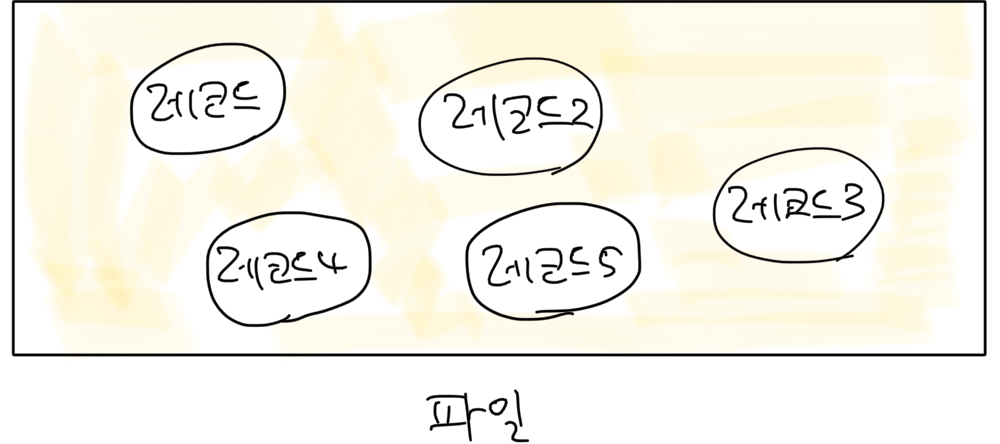 레코드
레코드2
레코드3
레코드4
레코드5
파일